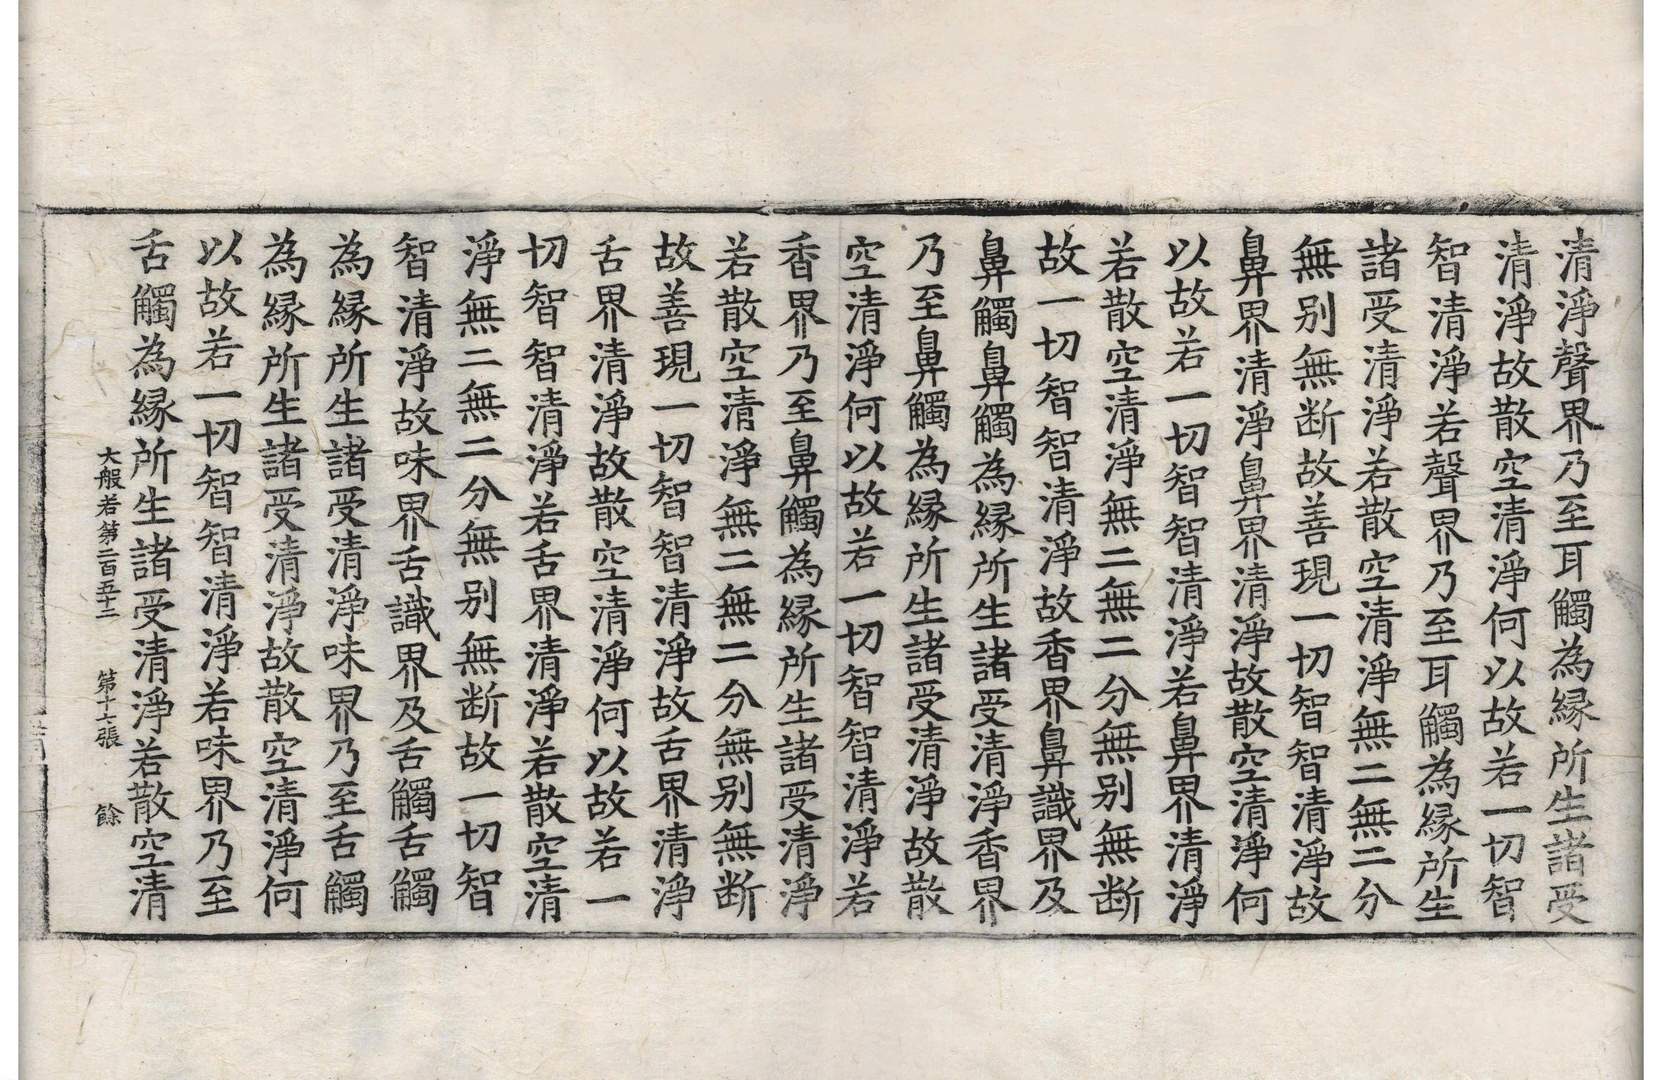 清淨聲界乃至耳觸為縁所生諸受
清淨故散空清淨何以故若一切智
智清淨若聲界乃至耳觸為縁所生
諸受清淨若散空清淨無二無二分
無别無断故善現一切智智清淨故
鼻界清淨鼻界清淨故散空清淨何
以故若一切智智清淨若鼻界清淨
若散空清淨無二無二分無别無断
故一切智智清淨故香界鼻識界及
鼻觸鼻觸為縁所生諸受清淨香界
乃至鼻觸為縁所生諸受清淨故散
空清淨何以故若一切智智清淨若
香界乃至鼻觸為縁所生諸受清淨
若散空清淨無二無二分無别無断
故善現一切智智清淨故舌界清淨
舌界清淨故散空清淨何以故若一
切智智清淨若舌界清淨若散空清
淨無二無二分無别無断故一切智
智清淨故味界舌識界及舌觸舌觸
為縁所生諸受清淨味界乃至舌觸
為縁所生諸受清淨故散空清淨何
以故若一切智智清淨若味界乃至
舌觸為縁所生諸受清淨若散空清
大般若第二百五十二 第十六張 餘